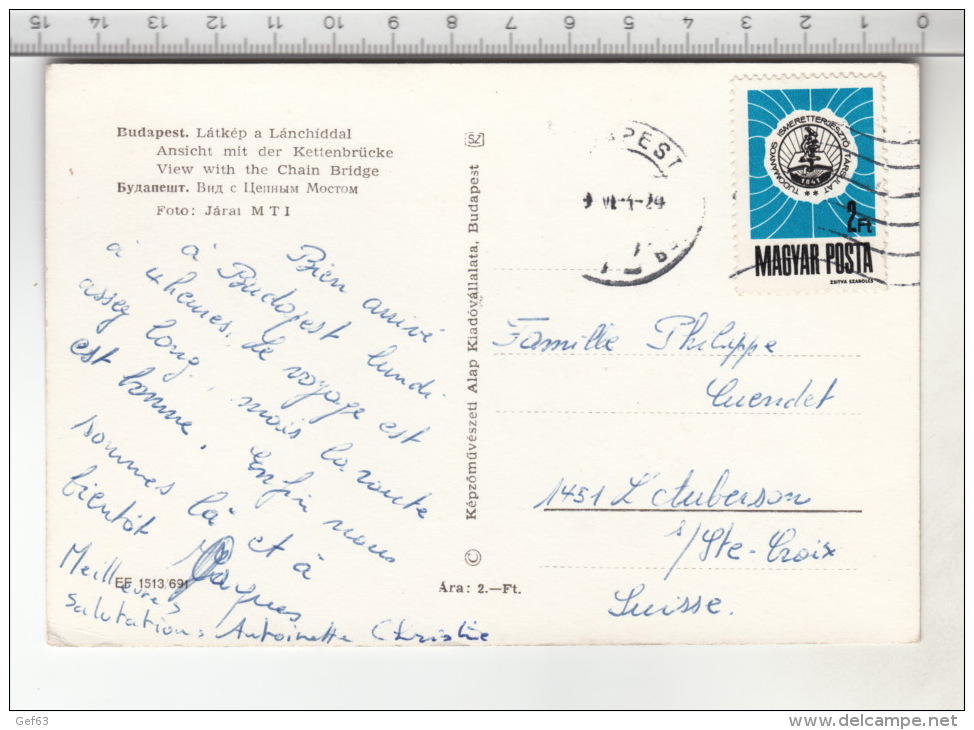 15 14 13 12 11 10 9 8 7 6 5 4 3 2 1 0
Budapest. Látkép a Lánchíddal
Ansicht mit der Kettenbrücke
View with the Chain Bridge
Будапешт. Вид с Цепным Мостом
Foto: Járai MTI
Bien arrivé
à Budapest lundi
à 4 heures. Le voyage est
assez long, mais la route
est bonne. Enfin nous
sommes là et à
bientôt
Jaques
Meilleures
salutations Antoinette Christine
EF 1513/691
Ára: 2.—Ft.
© Képzőművészeti Alap Kiadóvállalata, Budapest
SZ
PEST
VI
TUDOMÁNYOS ISMERETTERJESZTŐ TÁRSULAT
1841
2Ft
MAGYAR POSTA
ZSITVA SZABOLCS
Famille Philippe
Cuendet
1451 L'Auberson
s/Ste-Croix
Suisse.
Gef63
www.delcampe.net